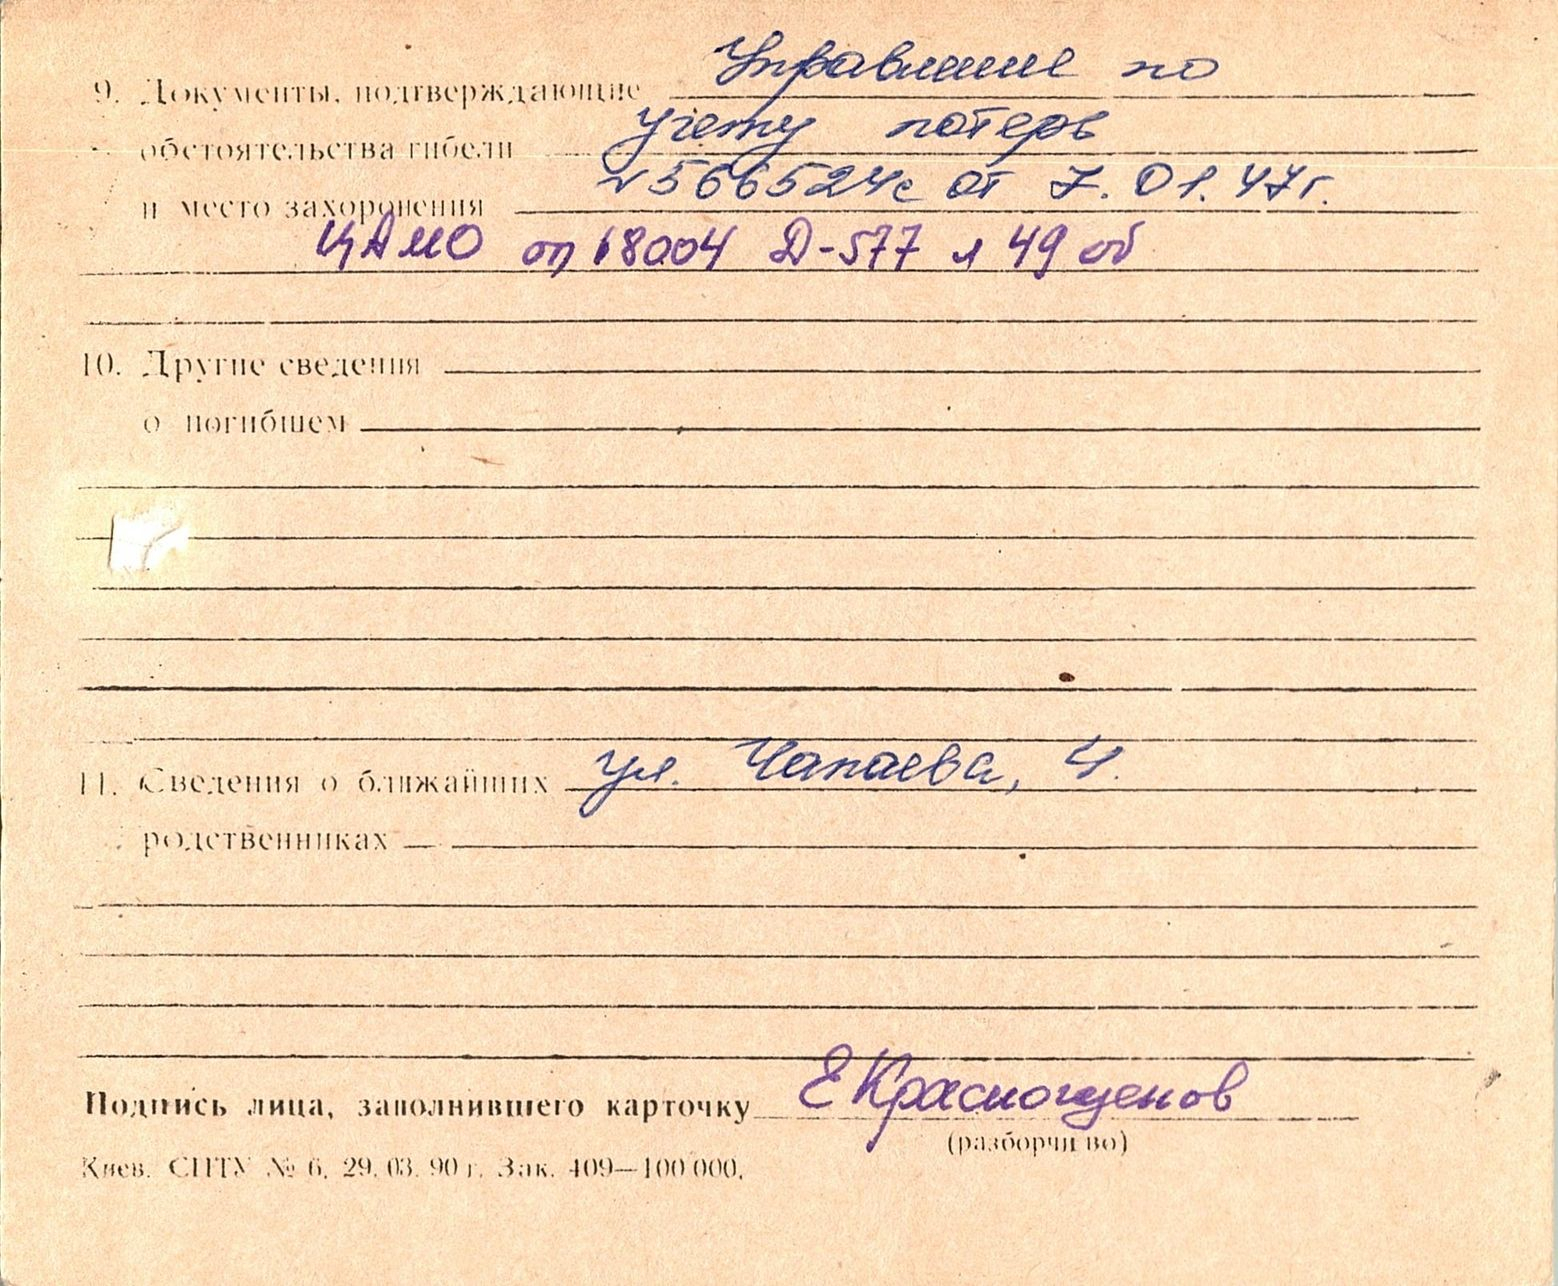 Управление по
9. Документы, подтверждающие
учету потерь
обстоятельства гибели
№ 566524с от 7.01.47г.
и место захоронения
ЦАМО оп 18004 Д-577 л 49 об
10. Другие сведения
о погибшем
11. Сведения о ближайших ул. Чапаева, 4.
родственниках
Подпись лица, заполнившего карточку
(разборчиво)
Киев. СПТУ № 6. 29.03.90 г. Зак. 409—100 000.